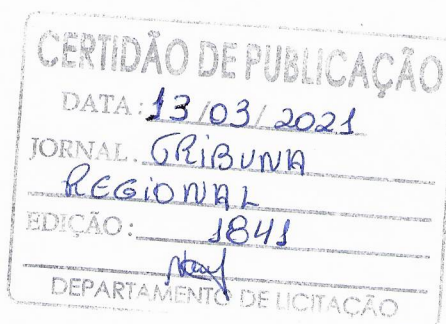 CERTIDÃO DE PUBLICAÇÃO
DATA: 13/03/2021
JORNAL. TRIBUNA
REGIONAL
EDIÇÃO: 1841
DEPARTAMENTO DE LICITAÇÃO